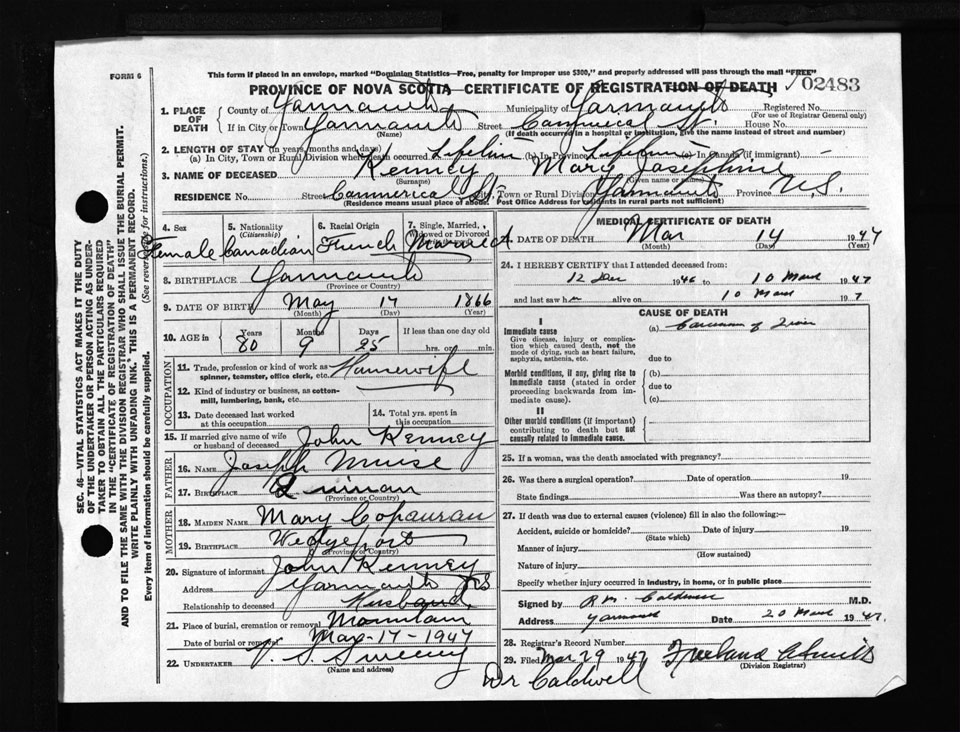 FORM 6
This form if placed in an envelope, marked "Dominion Statistics—Free, penalty for improper use $300," and properly addressed will pass through the mail "FREE"
PROVINCE OF NOVA SCOTIA—CERTIFICATE OF REGISTRATION OF DEATH 02483
1. PLACE OF DEATH County of Yarmouth Municipality of Yarmouth Registered No.
(For use of Registrar General only)
If in City or Town Yarmouth Street Commercial St. House No.
(Name) (If death occurred in a hospital or institution, give the name instead of street and number)
2. LENGTH OF STAY (in years, months and days)
(a) In City, Town or Rural Division where death occurred Lifetime (b) In Province Lifetime (c) In Canada (if immigrant)
3. NAME OF DECEASED Kenney Mary Josephine
(Surname) (Given name or names)
RESIDENCE No. Street Commercial St. City, Town or Rural Division Yarmouth Province N.S.
(Residence means usual place of abode. Post Office Address for residents in rural parts not sufficient)
4. Sex 5. Nationality (Citizenship) 6. Racial Origin 7. Single, Married, Widowed or Divorced
Female Canadian French Married
8. BIRTHPLACE Yarmouth
(Province or Country)
9. DATE OF BIRTH May 17 1866
(Month) (Day) (Year)
10. AGE in Years Months Days If less than one day old
80 9 25 hrs. or min.
OCCUPATION
11. Trade, profession or kind of work as spinner, teamster, office clerk, etc. Housewife
12. Kind of industry or business, as cotton-mill, lumbering, bank, etc.
13. Date deceased last worked at this occupation
14. Total yrs. spent in this occupation
15. If married give name of wife or husband of deceased John Kenney
FATHER
16. NAME Joseph Muise
17. BIRTHPLACE Quinan
(Province or Country)
MOTHER
18. MAIDEN NAME Mary
19. BIRTHPLACE Wedgeport
(Province or Country)
20. Signature of informant John Kenney
Address Yarmouth NS
Relationship to deceased Husband
21. Place of burial, cremation or removal Mountain
Date of burial or removal Mar-17-1947
22. UNDERTAKER V. S. Sweeny
(Name and address)
MEDICAL CERTIFICATE OF DEATH
DATE OF DEATH Mar 14 1947
(Month) (Day) (Year)
24. I HEREBY CERTIFY that I attended deceased from:
12 Dec 1946 to 10 March 1947
and last saw her alive on 10 March 1947
CAUSE OF DEATH
I
Immediate cause (a) Carcinoma of Liver
Give disease, injury or complication which caused death, not the mode of dying, such as heart failure, asphyxia, asthenia, etc.
due to
Morbid conditions, if any, giving rise to immediate cause (stated in order proceeding backwards from immediate cause).
(b)
due to
(c)
II
Other morbid conditions (if important) contributing to death but not causally related to immediate cause.
25. If a woman, was the death associated with pregnancy?
26. Was there a surgical operation? Date of operation 19
State findings Was there an autopsy?
27. If death was due to external causes (violence) fill in also the following:—
Accident, suicide or homicide? Date of injury 19
(State which)
Manner of injury
(How sustained)
Nature of injury
Specify whether injury occurred in industry, in home, or in public place
Signed by R M. Caldwell M.D.
Address Yarmouth Date 20 March 1947.
28. Registrar's Record Number
29. Filed Mar 29 1947
(Division Registrar)
Dr Caldwell
SEC. 46—VITAL STATISTICS ACT MAKES IT THE DUTY
OF THE UNDERTAKER OR PERSON ACTING AS UNDER-
TAKER TO OBTAIN ALL THE PARTICULARS REQUIRED
IN THE "CERTIFICATE OF REGISTRATION OF DEATH"
AND TO FILE THE SAME WITH THE DIVISION REGISTRAR WHO SHALL ISSUE THE BURIAL PERMIT.
WRITE PLAINLY WITH UNFADING INK. THIS IS A PERMANENT RECORD.
Every item of information should be carefully supplied. (See reverse for instructions.)